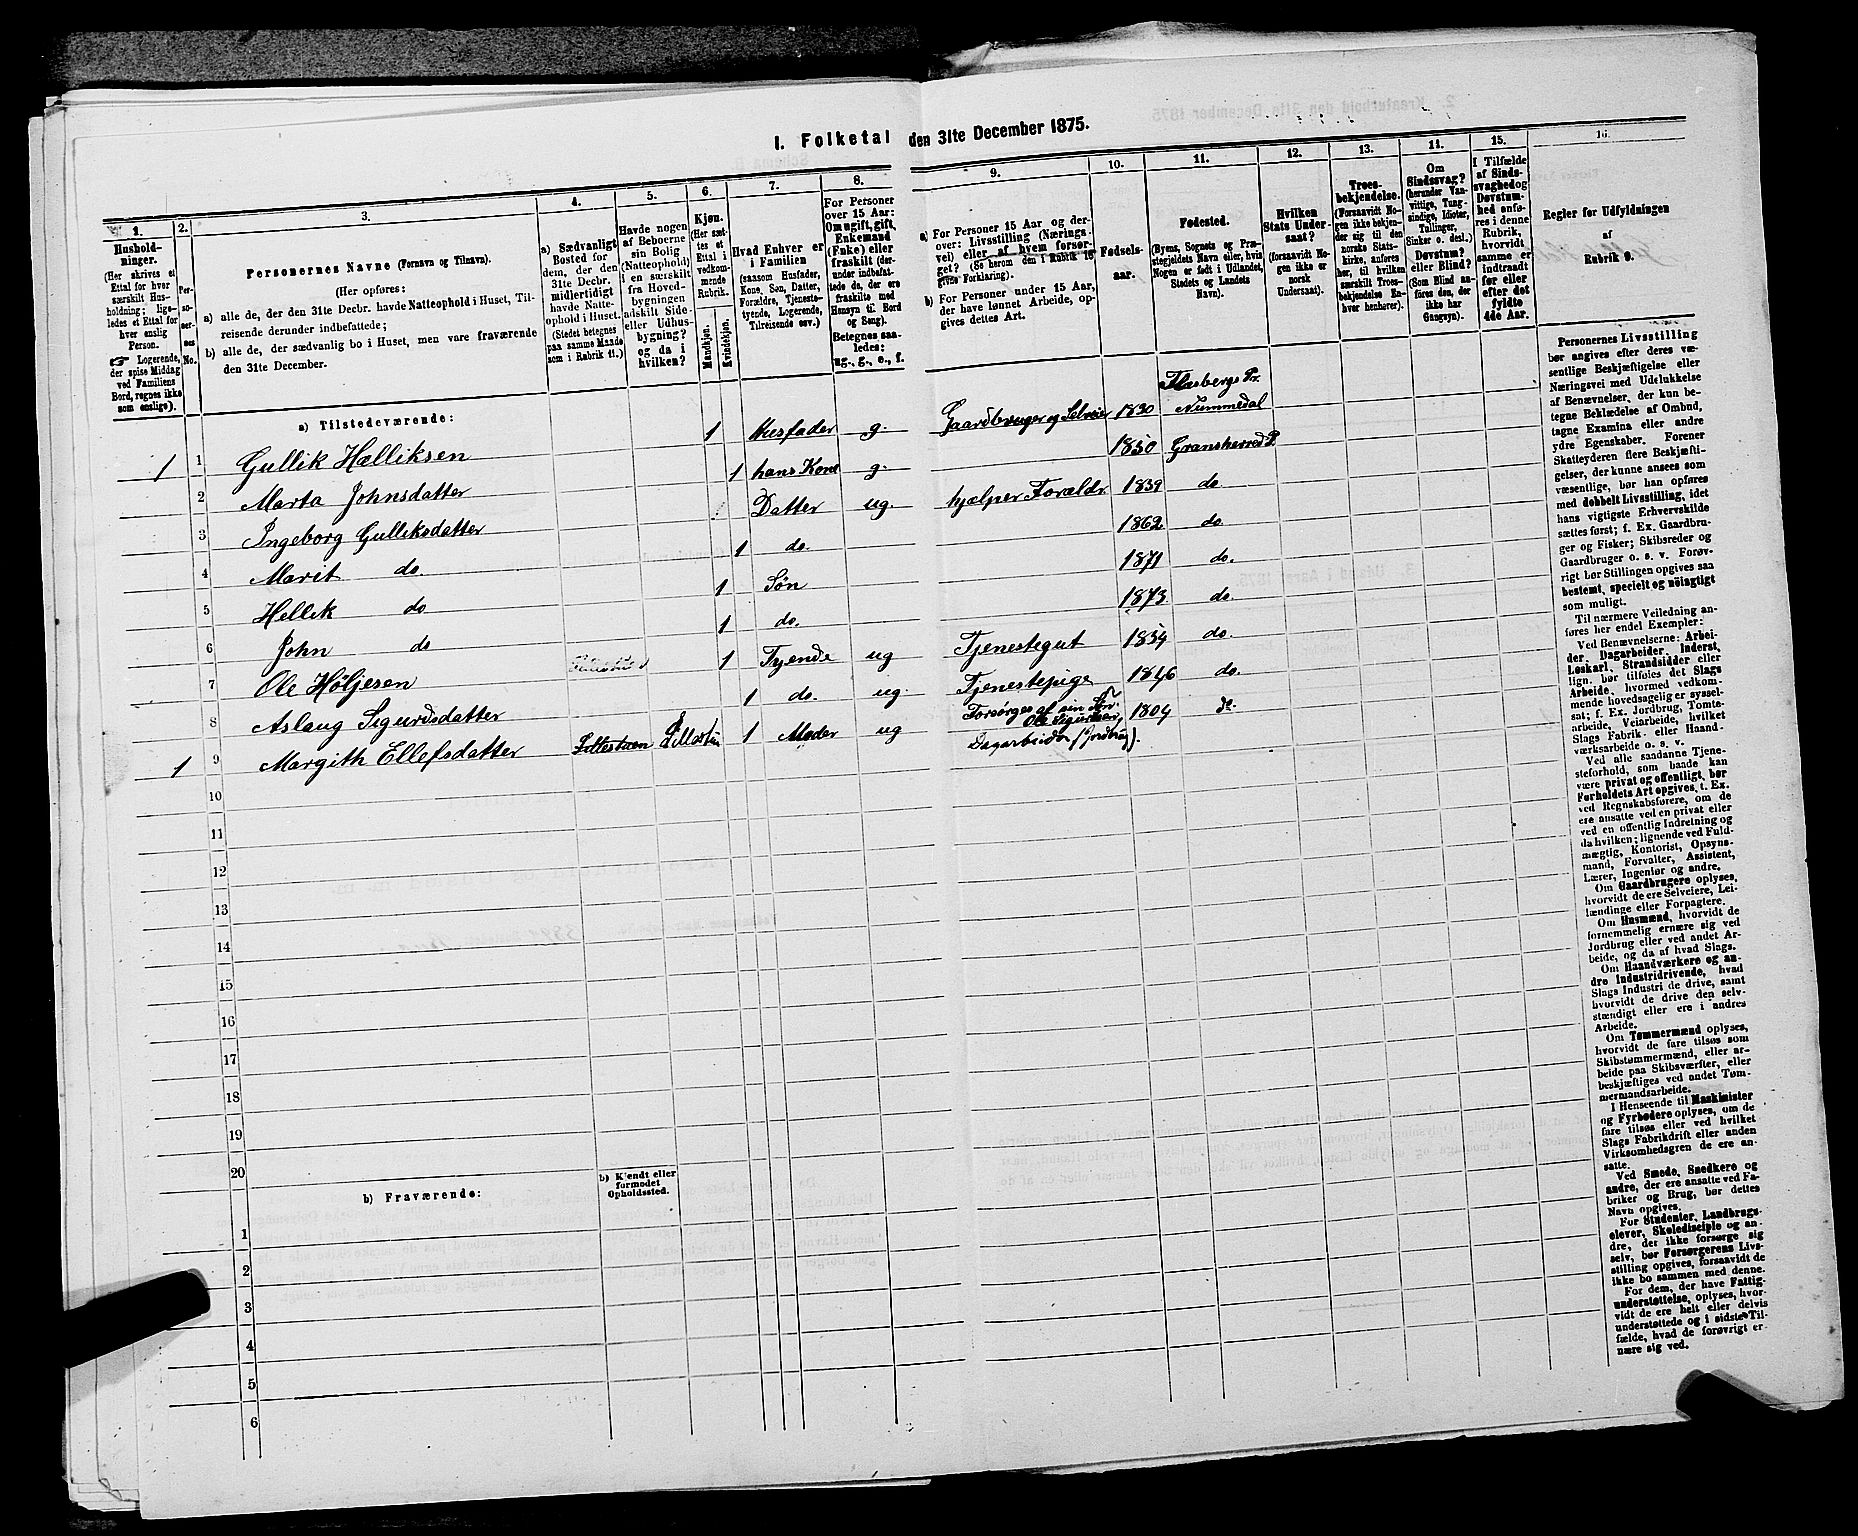 I. Folketal den 31te December 1875.
1. 2. 3. 4. 5. 6. 7. 8. 9. 10. 11. 12. 13. 14. 15. 16.
Hushold-
ninger.
(Her skrives et
Ettal for hver
særskilt Hus-
holdning; lige-
ledes et Ettal for
hver enslig
Person.
☞ Logerende,
der spise Middag
ved Familiens
Bord, regnes ikke
som enslige).
Per-
so-
ner-
nes
No.
Personernes Navne (Fornavn og Tilnavn).
(Her opføres:
a) alle de, der den 31te Decbr. havde Natteophold i Huset, Til-
reisende derunder indbefattede;
b) alle de, der sædvanlig bo i Huset, men vare fraværende
den 31te December.
a) Sædvanligt
Bosted for
dem, der den
31te Decbr.
midlertidigt
havde Natte-
ophold i Huset.
(Stedet betegnes
paa samme Maade
som i Rubrik 11.)
Havde nogen
af Beboerne
sin Bolig
(Natteophold)
i en særskilt
fra Hoved-
bygningen
adskilt Side-
eller Udhus-
bygning?
og da i
hvilken?
Kjøn.
(Her sæt-
tes et
Ettal i
vedkom-
mende
Rubrik.
Mandkjøn.
Kvindekjøn.
Hvad Enhver er
i Familien
(saasom Husfader,
Kone, Søn, Datter,
Forældre, Tjeneste-
tyende, Logerende,
Tilreisende osv.)
For Personer
over 15 Aar:
Om ugift, gift,
Enkemand
(Enke) eller
fraskilt (der-
under indbefat-
tede de, der ere
fraskilte med
Hensyn til Bord
og Seng).
Betegnes saa-
ledes:
ug., g., e., f.
a) For Personer 15 Aar og der-
over: Livsstilling (Nærings-
vei) eller af hvem forsør-
get? (Se herom den i Rubrik 16
givne Forklaring).
b) For Personer under 15 Aar,
der have lønnet Arbeide, op-
gives dettes Art.
Fødsels-
aar.
Fødested.
(Byens, Sognets og Præ-
stegjeldets Navn eller, hvis
Nogen er født i Udlandet,
Stedets og Landets
Navn).
Hvilken
Stats Under-
saat?
(forsaavidt No-
gen ikke er
norsk
Undersaat).
Troes-
bekjendelse.
(Forsaavidt No-
gen ikke bekjen-
der sig til den
norske Stats-
kirke, anføres
her, til hvilken
særskilt Troes-
bekjendelse En-
hver henhører).
Om
Sindssvag?
(herunder Van-
vittige, Tung-
sindige, Idioter,
Tullinger,
Sinker o. desl.)
Døvstum?
eller Blind?
(Som Blind an-
føres den, der
ikke har
Gangsyn).
I Tilfælde
af Sinds-
svaghed og
Døvstum-
hed anfø-
res i denne
Rubrik,
hvorvidt
samme er
indtraadt
før eller
efter det
fyldte
4de Aar.
Regler for Udfyldningen
af
Rubrik 9.
a) Tilstedeværende:
1 1 Gullik Hælliksen 1 Husfader g. Gaardbruger og Selveier 1830 Flesbergs Pr. Nummedal
2 Marta Johnsdatter 1 hans Kone g. 1830 Gransherred P.
3 Ingeborg Gulliksdatter Datter ug. hjælper Forældr. 1859 do
4 Marit do. 1 do. 1862 do.
5 Hellik do 1 Søn 1871 do.
6 John do 1 do. 1873 do.
7 Ole Høljesen 1 Tyende ug Tjenestegut 1854 do.
8 Aslaug Sigurdsdatter 1 do. ug. Tjenestepige 1846 do.
1 9 Margith Ellefsdatter 1 Moder ug Forsørges af sin Søn Ole Sigurdsen, Dagarbeider (Jordbrug). 1804 do.
10
11
12
13
14
15
16
17
18
19
20
b) Fraværende:
b) Kjendt eller
formodet
Opholdssted.
1
2
3
4
5
6
Personernes Livsstilling
bør angives efter deres væ-
sentlige Beskjæftigelse eller
Næringsvei med Udelukkelse
af Benævnelser, der kun be-
tegne Beklædelse af Ombud,
tagne Examina eller andre
ydre Egenskaber. Forener
Skatteyderen flere Beskjæfti-
gelser, der kunne ansees som
væsentlige, bør han opføres
med dobbelt Livsstilling, idet
hans vigtigste Erhvervskilde
sættes først; f. Ex. Gaardbru-
ger og Fisker; Skibsreder og
Gaardbruger o. s. v. Forøv-
rigt bør Stillingen opgives saa
bestemt, specielt og nöiagtigt
som muligt.
Til nærmere Veiledning an-
føres her endel Exempler:
Ved Benævnelserne: Arbei-
der, Dagarbeider, Inderst,
Løskarl, Strandsidder eller
lign. bør tilføies det Slags
Arbeide, hvormed vedkom-
mende hovedsagelig er syssel-
sat; f. Ex. Jordbrug, Tomte-
arbeide, Veiarbeide, hvilket
Slags Fabrik- eller Haand-
værksarbeide o. s. v.
Ved alle saadanne Tjene-
steforhold, som baade kan
være privat og offentligt, bør
Forholdets Art opgives, t. Ex.
ved Regnskabsførere, om de
ere ansatte ved en privat eller
ved en offentlig Indretning og
da hvilken; lignende ved Fuld-
mægtig, Kontorist, Opsyns-
mand, Forvalter, Assistent,
Lærer, Ingeniør og andre.
Om Gaardbrugere oplyses,
hvorvidt de ere Selveiere, Lei-
lændinge eller Forpagtere.
Om Husmænd, hvorvidt de
fornemmelig ernære sig ved
Jordbrug eller ved andet Ar-
beide, og da af hvad Slags.
Om Haandværkere og an-
dre Industridrivende, hvad
Slags Industri de drive, samt
hvorvidt de drive den selv-
stændigt eller ere i andres
Arbeide.
Om Tømmermænd oplyses,
hvorvidt de fare tilsøs som
Skibstømmermænd, eller ar-
beide paa Skibsværfter, eller
beskjæftiges ved andet Tøm-
mermandsarbeide.
I Henseende til Maskinister
og Fyrbødere oplyses, om de
fare tilsøs eller ved hvilket
Slags Fabrikdrift eller anden
Virksomhedsgren de ere an-
satte.
Ved Smede, Snedkere og
andre, der ere ansatte ved Fa-
briker og Brug, bør dettes
Navn opgives.
For Studenter, Landbrugs-
elever, Skoledisciple og an-
dre, der ikke forsørge sig
selv, bør Forsørgerens Livs-
stilling opgives, forsaavidt de
ikke bo sammen med denne.
For dem, der have Fattig-
understøttelse, oplyses, hvor-
vidt de ere helt eller delvis
understøttede og i sidste Til-
fælde, hvad de forøvrigt er-
nære sig ved.